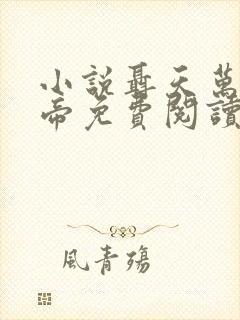 小說聶天萬
帝免費閱讀
風青殤